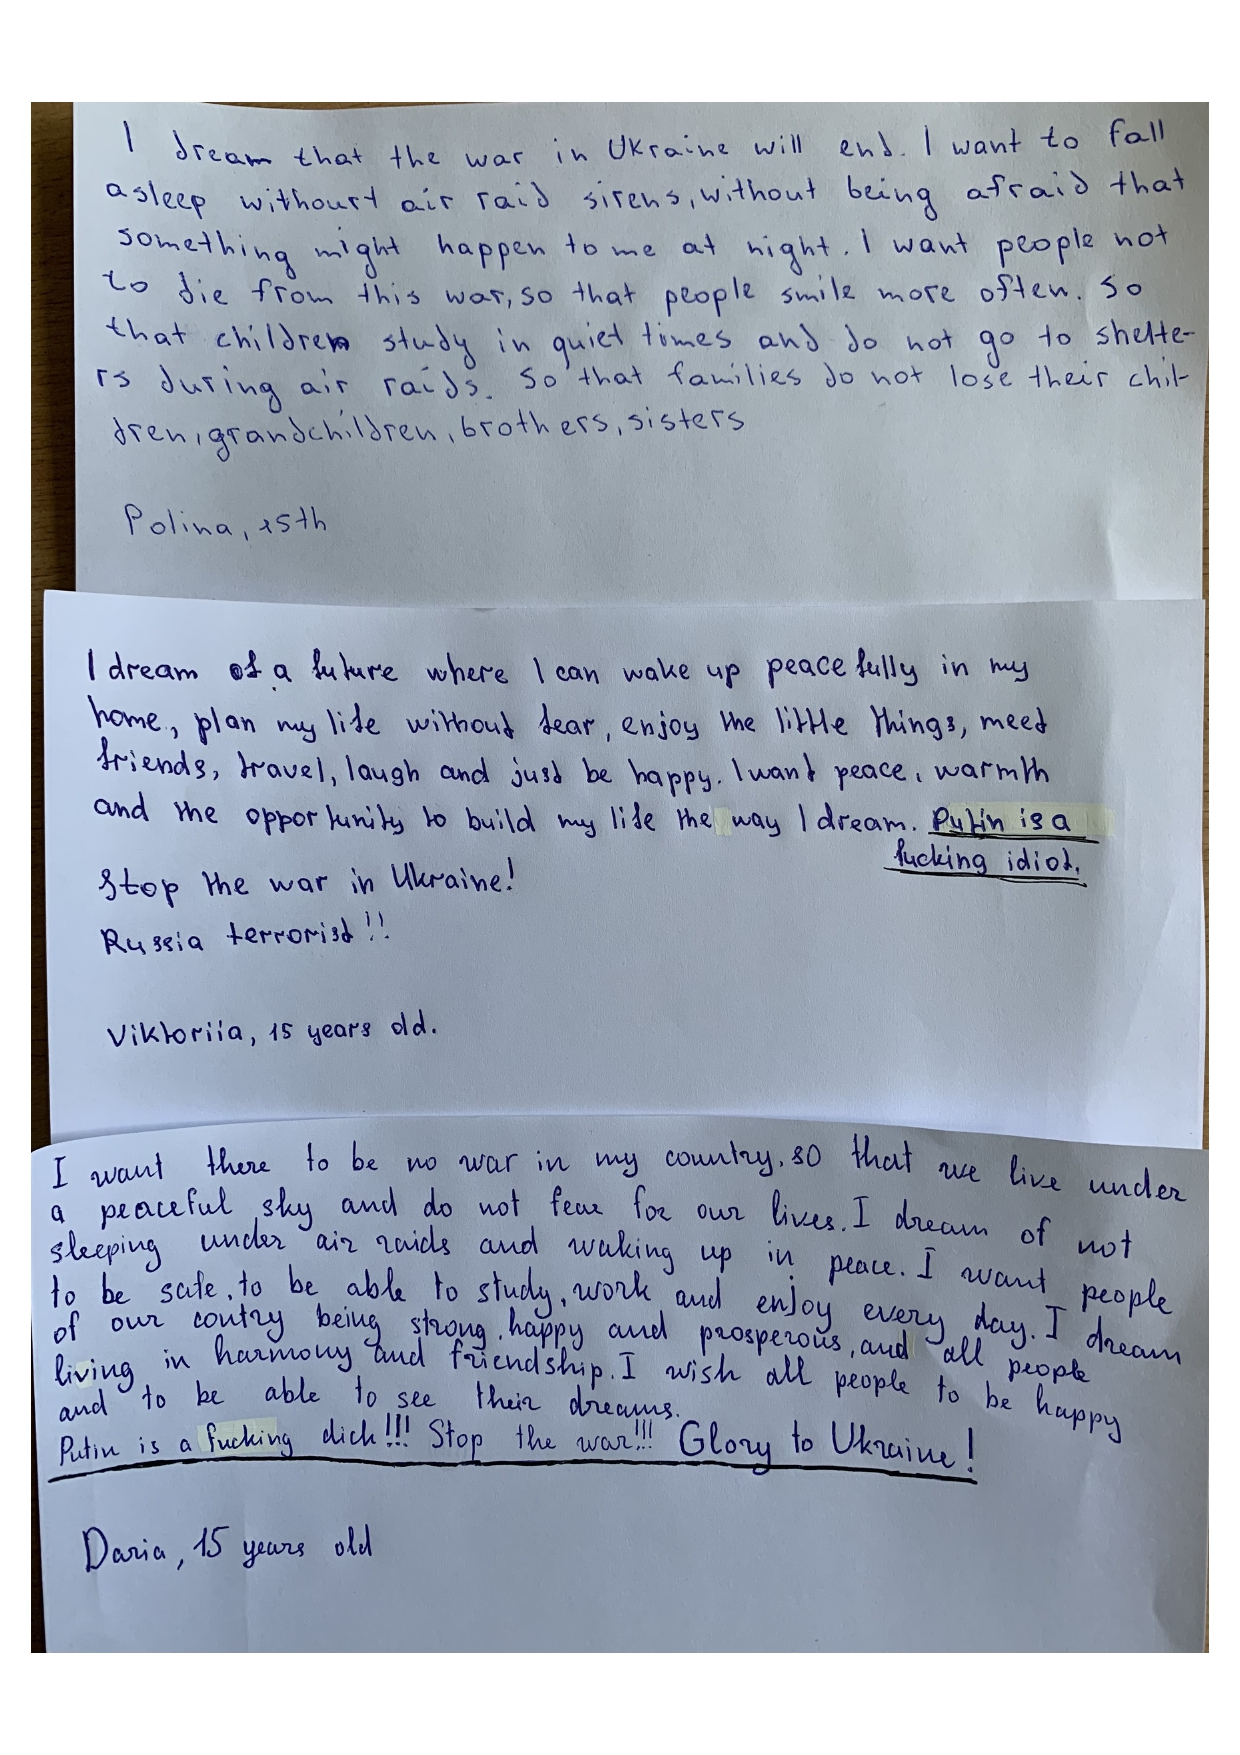 I dream that the war in Ukraine will end. I want to fall
asleep withourt air raid sirens, without being afraid that
something might happen to me at night. I want people not
to die from this war, so that people smile more often. So
that children study in quiet times and do not go to shelte-
rs during air raids. So that families do not lose their chil-
dren, grandchildren, brothers, sisters
Polina, 15th
I dream of a future where I can wake up peacefully in my
home, plan my life without fear, enjoy the little things, meet
friends, travel, laugh and just be happy. I want peace, warmth
and the opportunity to build my life the way I dream. Putin is a
fucking idiot.
Stop the war in Ukraine!
Russia terrorist!!
Viktoriia, 15 years old.
I want there to be no war in my country, so that we live under
a peaceful sky and do not fear for our lives. I dream of not
sleeping under air raids and waking up in peace. I want people
to be safe, to be able to study, work and enjoy every day. I dream
of our contry being strong, happy and prosperous, and all people
living in harmony and friendship. I wish all people to be happy
and to be able to see their dreams.
Putin is a fucking dick!!! Stop the war!!! Glory to Ukraine!
Daria, 15 years old